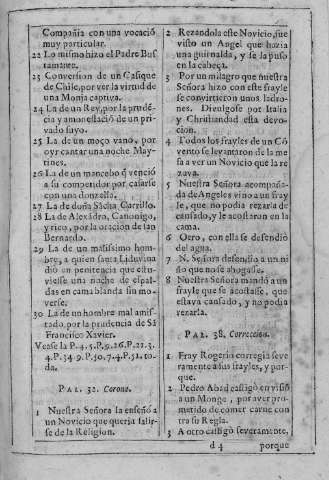 Compañia con una vocació
muy particular.
22 Lo mismo hizo el Padre Bus
tamante.
23 Conversion de un Casique
de Chile, por ver la virtud de
una Monja captiva.
24 La de un Rey, por la prudẽ-
cia y amonestació de un pri-
vado suyo.
25 La de un moço vano, por
oyr cantar una noche May-
tines.
26 La de un mancebo q̃ venció
a su competidor por casarse
con una donzella.
27 La de doña Sãcha Carrillo.
28 La de Alexãdro, Canonigo,
y rico, por la oracion de san
Bernardo.
29 La de un malissimo hom-
bre, a quien santa Liduvina
dió en penitencia que estu-
viesse una noche de espal-
das en cama blanda sin mo-
verse.
30 La de un hombre mal amis-
tado, por la prudencia de Sã
Francisco Xavier.
Vease la P. 4. 5. P. 9. 26. P. 22. 3.
4. P. 34. 9. P. 50. 7. 4. P. 52. to-
da.
PAL. 32. Corona.
1 Nuestra Señora la enseñó a
un Novicio que queria salir-
se de la Religion.
2 Rezandola este Novicio, fue
visto un Angel que hazia
una guirnalda, y se la puso
en la cabeça.
3 Por un milagro que nuestra
Señora hizo con este frayle
se convirtieron unos ladro-
nes. Divulgose por Italia
y Christiandad esta devo-
cion.
4 Todos los frayles de un Cõ-
vento se levantaron de la me
sa a ver un Novicio que la re
zava.
5 Nuestra Señora acompaña-
da de Angeles vino a un fray
le, que no podia rezarla de
cansado, y le acostaron en la
cama.
6 Otro, con ella se defendió
del agua.
7 N. Señora defendió a un ni
ño que no se ahogasse.
8 Nuestra Señora mandó a un
frayle que se acostasse, que
estava cansado, y no podia
rezarla.
PAL. 38. Correccion.
1 Fray Rogerio corregia seve
ramente a los frayles, y por-
que.
2 Pedro Abad castigó en visiõ
a un Monge, por aver pro-
metido de comer carne con
tra su Regla.
3 A otro castigó severamente,
d 4 porque